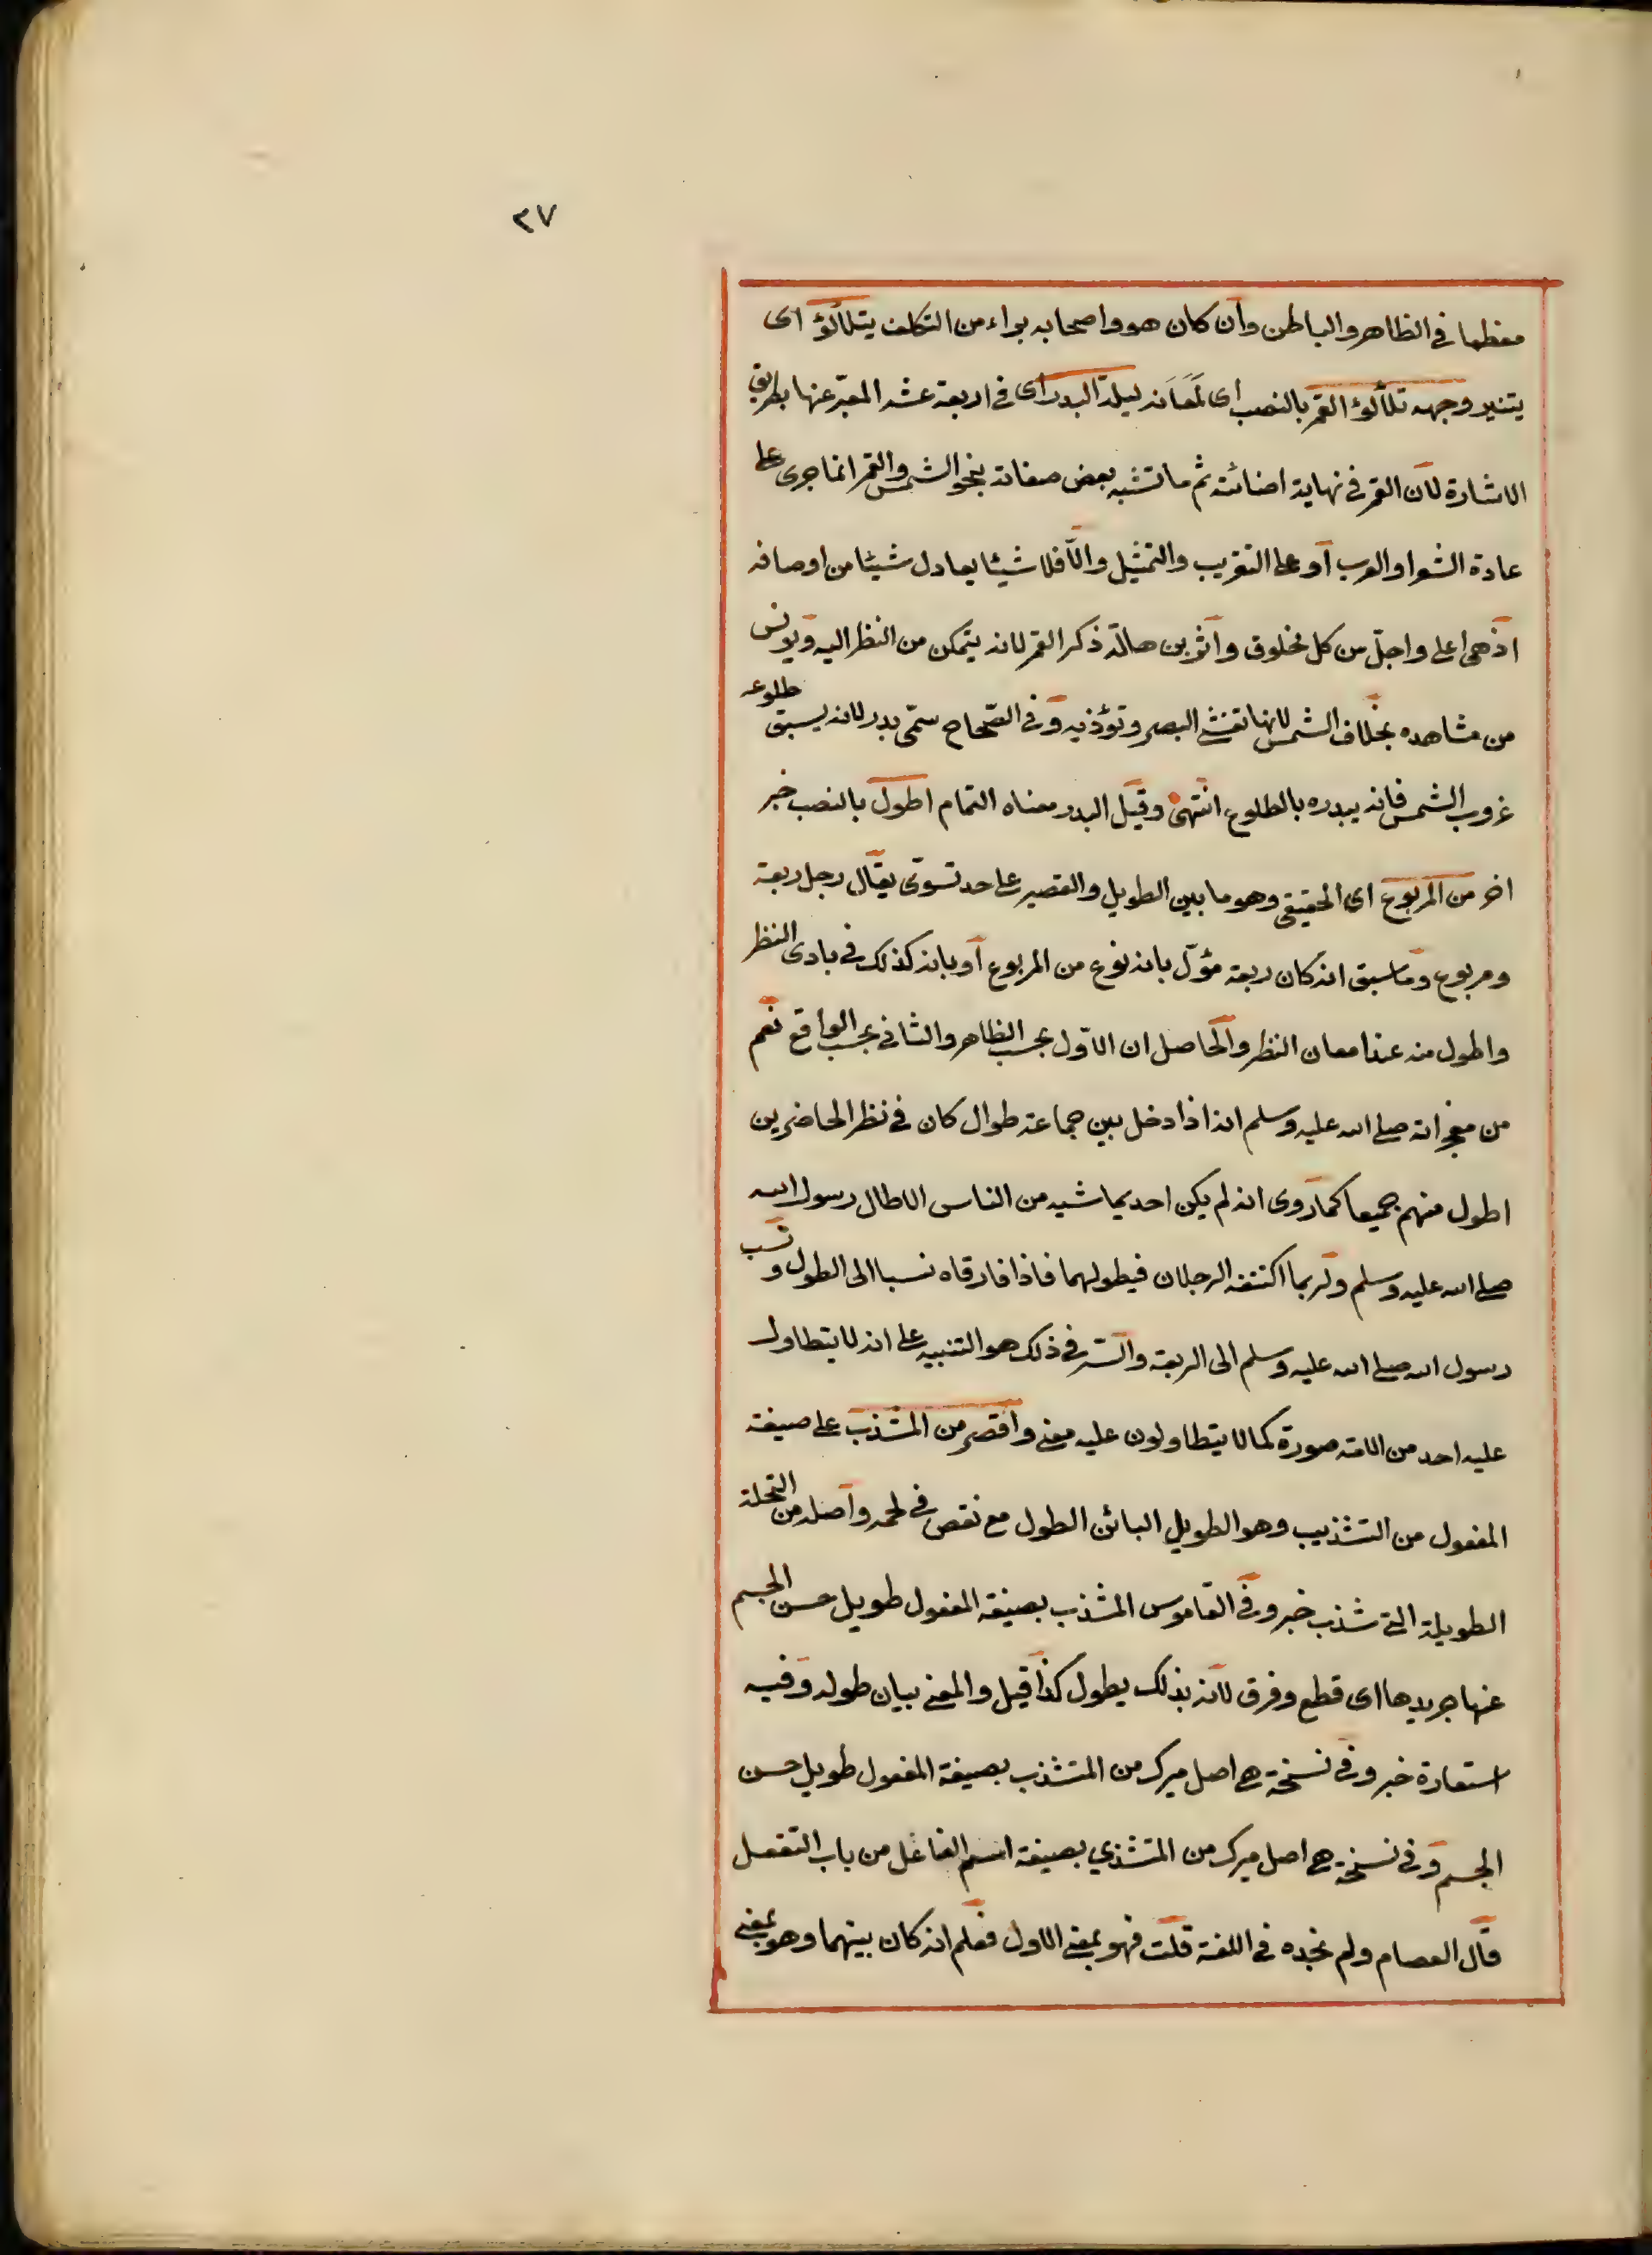 ٢٧
معظما فى الظاهر والباطن وان كان هو واصحابه براء من التكلف يتلألؤ اى
يتنير وجهه تلألؤ القمر بالنصب اى لَمَعَانه ليلة البدر اى فى اربعة عشر المعبّر عنها بطريق
الاشارة لان القمر فى نهاية اضائته ثم ما تشبه بعض صفاته بنحو الشمس والقمر انما جرى على
عادة الشعرا والعرب او على التقريب والتمثيل والّا فلا شيئا يعادل شيئا من اوصافه
اذ هى اعلى واجلّ من كل مخلوق واثر بن هالة ذكر القمر لانه يتمكن من النظر اليه ويونس
من مشاهده بخلاف الشمس لانها تغشى البصر وتؤذيه وفى الصّحاح سمّى بدر لانه يسبق طلوعه
غروب الشمس فانه يبدره بالطلوع انتهى وقيل البدر معناه التمام اطول بالنصب خبر
اخر من المربوع اى الحقيقى وهو ما بين الطويل والقصير على حد تسوّى يقال رجل ربعة
ومربوع وما سبق انه كان ربعة مؤوّل بانه نوع من المربوع او بانه كذلك فى بادى النظر
واطول منه عند امعان النظر والحاصل ان الاوّل بحسب الظاهر والثانى بحسب الواقع نعم
من معجزاته صلى الله عليه وسلم انه اذا دخل بين جماعة طوال كان فى نظر الحاضرين
اطول منهم جميعا كما روى انه لم يكن احد يماشيه من الناس الا طال رسول الله
صلى الله عليه وسلم ولربما اكتنفه الرجلان فيطولهما فاذا فارقاه نسبا الى الطول ونسب
رسول الله صلى الله عليه وسلم الى الربعة والسّر فى ذلك هو التنبيه على انه لا يتطاول
عليه احد من الامّة صورة كما لا يتطاولون عليه معنى واقصر من المشذب على صيغة
المفعول من التشذيب وهو الطويل البائن الطول مع نقص فى لحمه واصله من النخلة
الطويلة التى شذب خبر وفى القاموس المشذب بصيغة المفعول طويل حسن الجسم
عنها جريدها اى قطع وفرق لانه بذلك يطول كذا قيل والمعنى بيان طوله وفيه
استعارة خبر وفى نسخة هى اصل ميرك من المتشذب بصيغة المفعول طويل حسن
الجسم وفى نسخة هى اصل ميرك من المتشذي بصيغة اسم الفاعل من باب التفعل
قال العصام ولم نجده فى اللغة قلت فهو بمعنى الاول فعلم انه كان بينهما وهو بمعنى